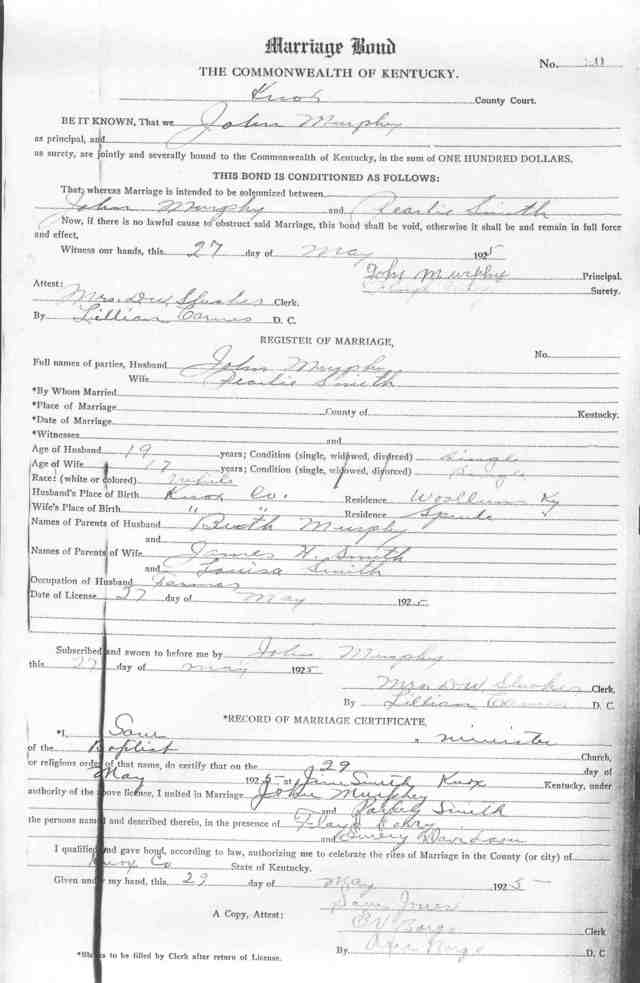 Marriage Bond
No.
THE COMMONWEALTH OF KENTUCKY.
Knox County Court.
BE IT KNOWN, That we John Murphy
as principal, and
as surety, are jointly and severally bound to the Commonwealth of Kentucky, in the sum of ONE HUNDRED DOLLARS.
THIS BOND IS CONDITIONED AS FOLLOWS:
That, whereas Marriage is intended to be solemnized between
John Murphy and Pearlie Smith
Now, if there is no lawful cause to obstruct said Marriage, this bond shall be void, otherwise it shall be and remain in full force
and effect.
Witness our hands, this 27 day of May 1925
John Murphy Principal.
Surety.
Attest: Mrs. D.W. Clerk.
By Lillian D. C.
REGISTER OF MARRIAGE,
No.
Full names of parties, Husband John Murphy
Wife Pearlie Smith
*By Whom Married
*Place of Marriage County of Kentucky.
*Date of Marriage
*Witnesses and
Age of Husband 19 years; Condition (single, widowed, divorced) Single
Age of Wife 17 years; Condition (single, widowed, divorced) Single
Race: (white or colored) White
Husband's Place of Birth Knox Co. Residence Woollum Ky
Wife's Place of Birth " " Residence "
Names of Parents of Husband Murphy
and
Names of Parents of Wife James H. Smith
and Louisa Smith
Occupation of Husband Farmer
Date of License 27 day of May 1925
Subscribed and sworn to before me by John Murphy
this 27 day of May 1925
Mrs. D.W. Clerk,
By Lillian D. C.
*RECORD OF MARRIAGE CERTIFICATE,
*I, Sam a minister
of the Baptist Church,
or religious order of that name, do certify that on the 29 day of
May 1925 at Jim Smith Knox Kentucky, under
authority of the above license, I united in Marriage John Murphy
and Smith
the persons named and described therein, in the presence of Floyd
and Davidson
I qualified and gave bond, according to law, authorizing me to celebrate the rites of Marriage in the County (or city) of
Knox Co State of Kentucky.
Given under my hand, this 29 day of May 1925
Sam Jones
A Copy, Attest: Clerk
By D. C
*Blanks to be filled by Clerk after return of License.